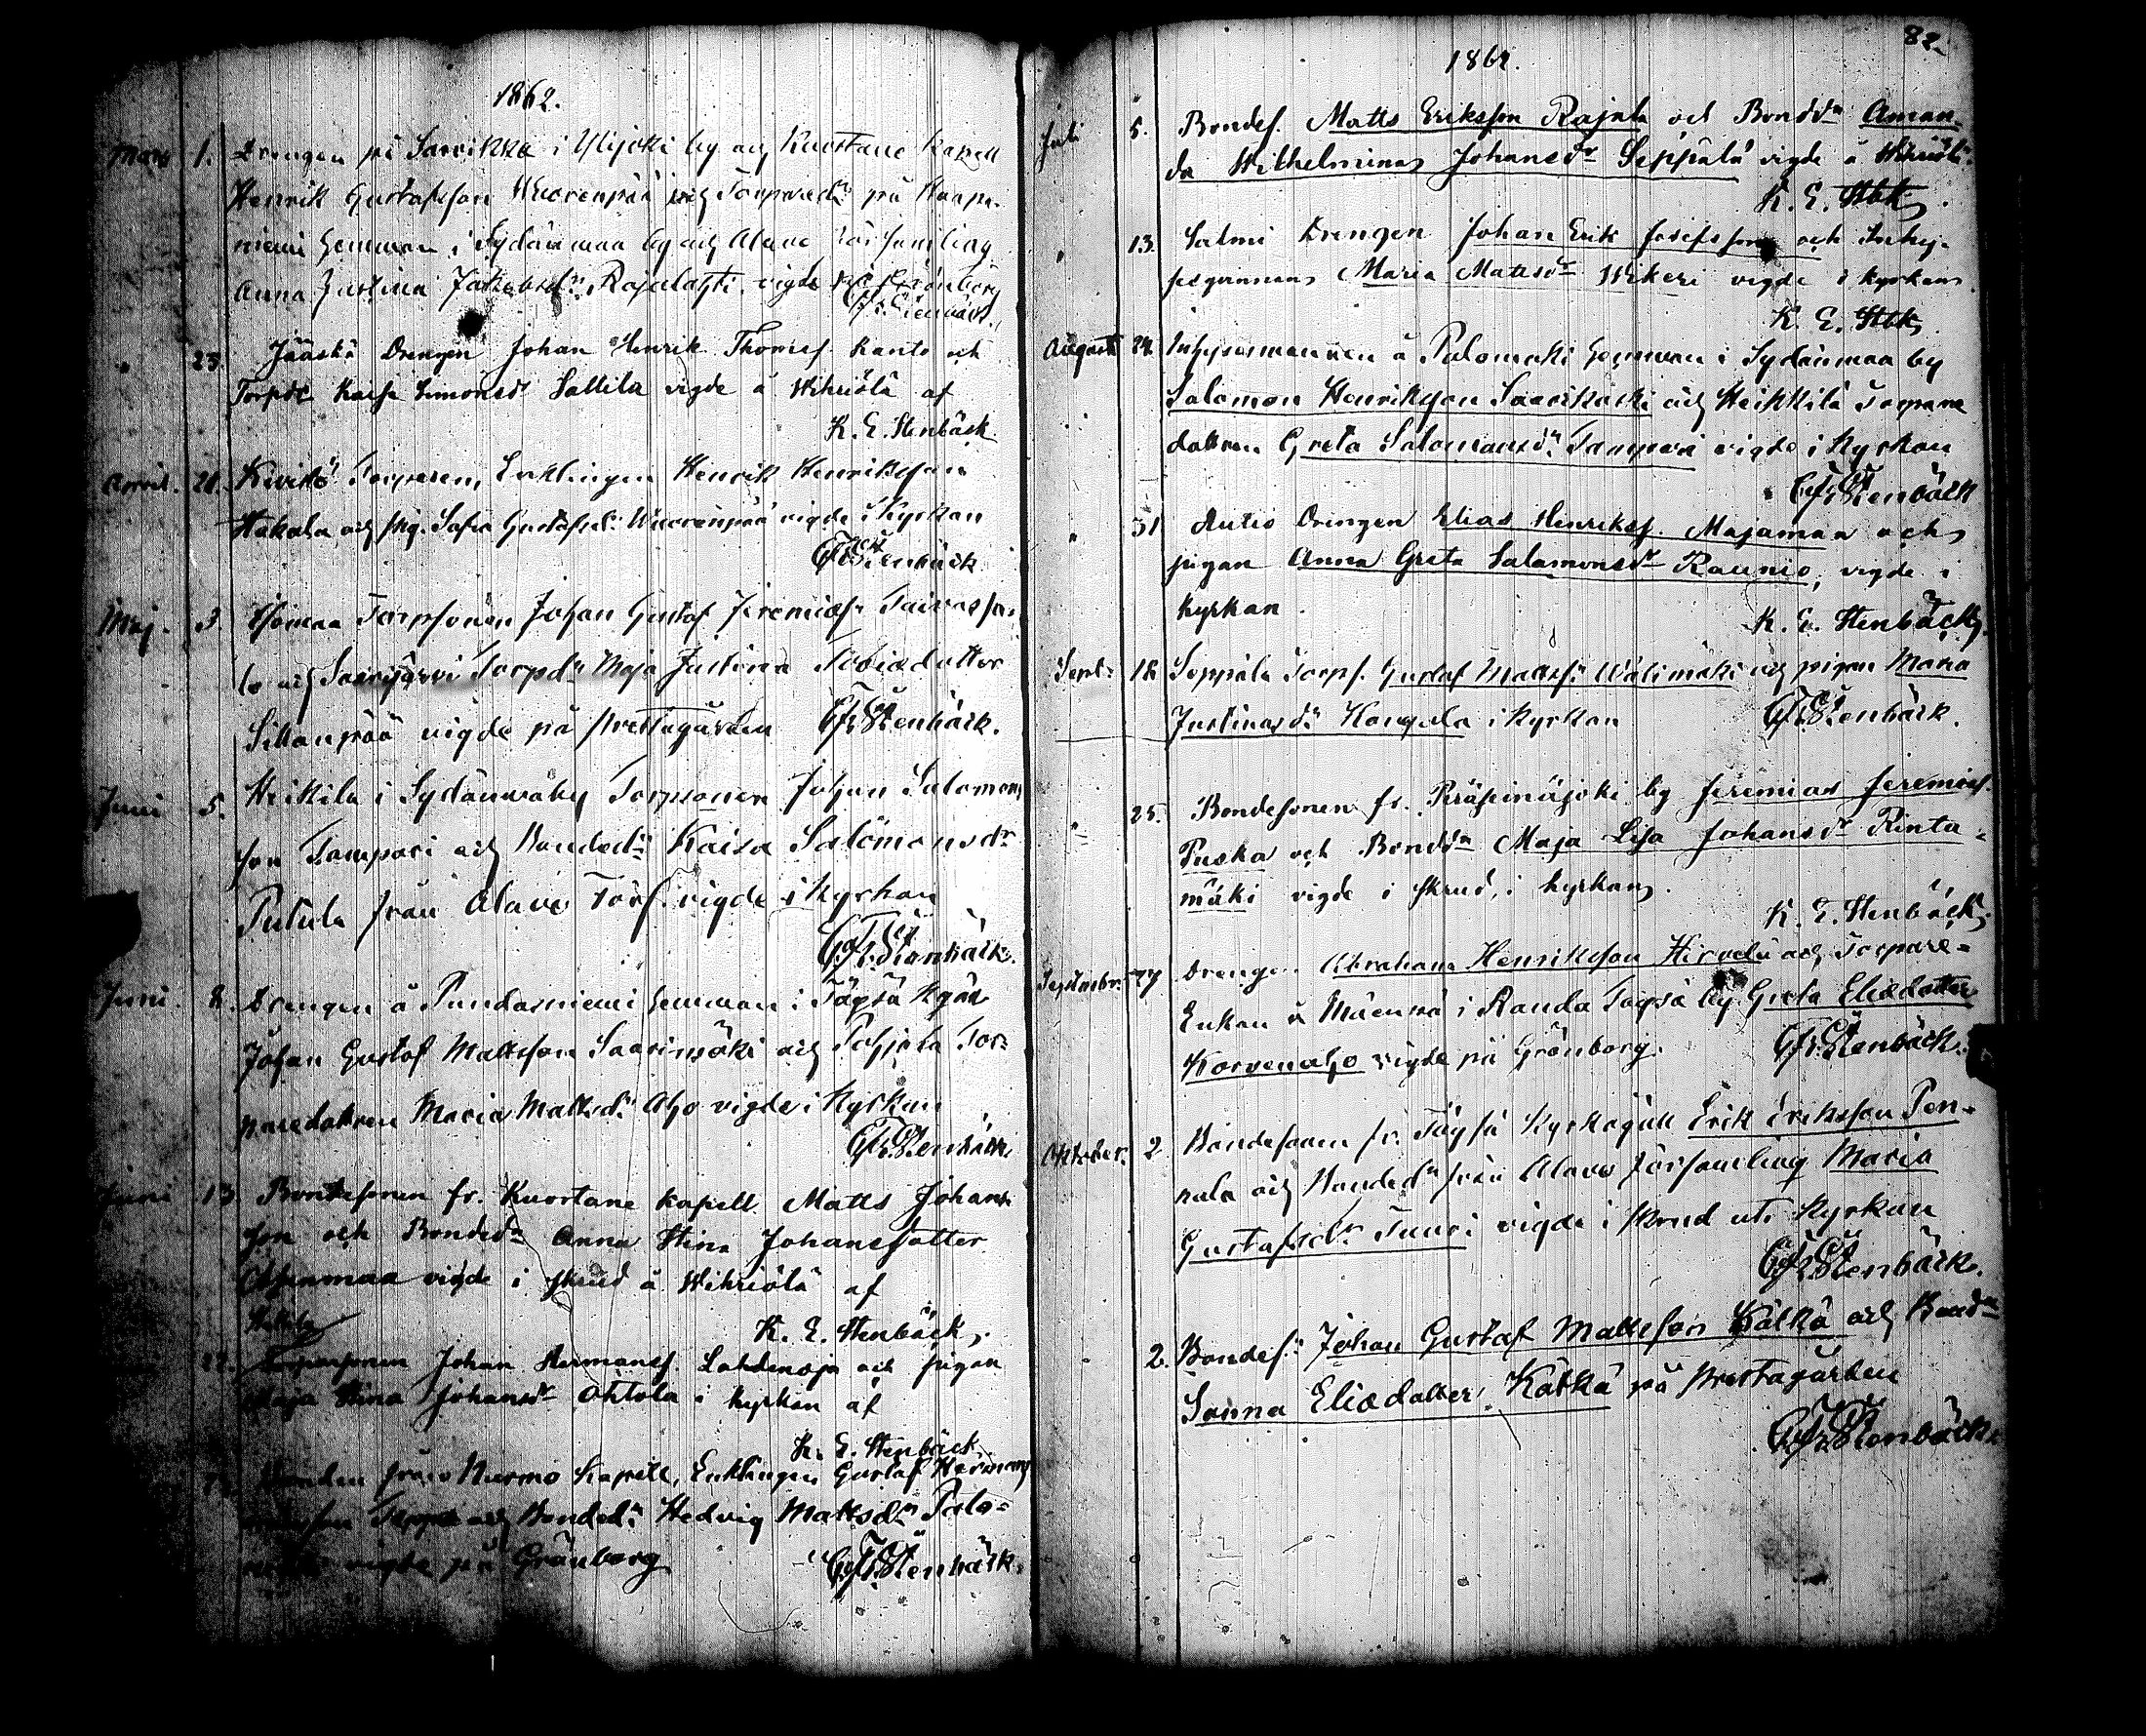 1862.
Mars 1. Drengen på Saarikka i Ylijoki by och Kuortane Kapell
Henrik Gustafsson Wuorenpää och Torparedr på Haapa-
niemi hemman i Sydänmaa by och Alavo församling
Anna Justina Jakobsdr Rajalahti vigde på Grönborg
Stenbäck.
23. Jääskä Drengen Johan Henrik Thomasf. Ranto och
Torpdr Kaisa Simonsdr Sallila vigde å Wihriölä af
K. E. Stenbäck
April. 21. Kivistö Torparen, Enklingen Henrik Henriksson
Hakala och pig. Sofia Gustafsdr Wuorenpää vigde i Kyrkan
Stenbäck
Maj. 3. Torpsonen Johan Gustaf Jeremiasf. Taivassa-
lo och Saarijärvi Torpdr Maja Justina Tobiædotter
Sillanpää vigde på Prestagården Stenbäck.
Juni 5. Heikkilä i Sydänmaby Torpsonen Johan Salomons
son Tampari och Bondedr Kaisa Salomonsdr
Putula från Alavo Förs. vigde i Kyrkan
Stenbäck.
Juni. 8. Drengen å Pundarniemi hemman i Töysä Kgäll
Johan Gustaf Mattsson Saarimäki och Pohjola Tor-
paredottren Maria Mattsdr Aho vigde i Kyrkan
Stenbäck
Juni 13 Bondesonen fr. Kuortane kapell Matts Johans
son och Bondedr Anna Stina Johansdotter
vigde i skrud å Wihriölä af
K. E. Stenbäck.
22. Torparsonen Johan Hermansf. Lahdenoja och pigan
Maja Stina Johansdr Ohtola i kyrkan af
K. E. Stenbäck
Bonden från Nurmo Kapell, Enklingen Gustaf Hermans
och Bondedr Hedvig Mattsdr Palo-
vigde på Grönborg Stenbäck.
82.
1862.
Juli 5. Bondes. Matts Eriksson Rajala och Bonddr Aman-
da Wilhelmina Johansdr Seppälä vigde å Wihriölä.
K. E. Stbk
13. Salmi Drengen Johan Erik Josefsson och Inhy-
sesqvinnan Maria Mattsdr Wekeri vigde i kyrkan
K. E. Stbk
Augusti 24. Inhysesmannen å Palomäki hemman i Sydänmaa by
Salomon Henriksson Saarikoski och Heikkilä Torpare
dottren Greta Salomonsdr Tampari vigde i Kyrkan
Stenbäck
31 Autio Drengen Elias Henriksf. Majamaa och
pigan Anna Greta Salamonsdr Raunio, vigde i
kyrkan.
K. E. Stenbäck.
Sept. 18 Seppälä Torps. Gustaf Mattsf. Wälimäki och pigan Maria
Justinasdr Kangula i Kyrkan Stenbäck.
25. Bondesonen fr. Peräseinäjoki by Jeremias Jeremiasf.
Puska och Bonddr Maja Lisa Johansdr Rinta-
mäki vigde i skrud, i kyrkan.
K. E. Stenbäck.
September. 27 Drengen Abraham Henriksson Hirvelä och Torpare-
Enkan å Mäenpä i Randa Töysä by Greta Eliædotter
Korvenaho vigde på Grönborg. Stenbäck.
Oktober. 2 Bondesonen fr. Töysä Kyrkogäll Erik Eriksson Pen-
nala och Bondedr från Alavo församling Maria
Gustafsdr Tuuri vigde i skrud uti Kyrkan
Stenbäck.
2. Bondes. Johan Gustaf Mattsson Kätkä och Bonddr
Sanna Eliædotter Kätkä på Prestagården
Stenbäck.